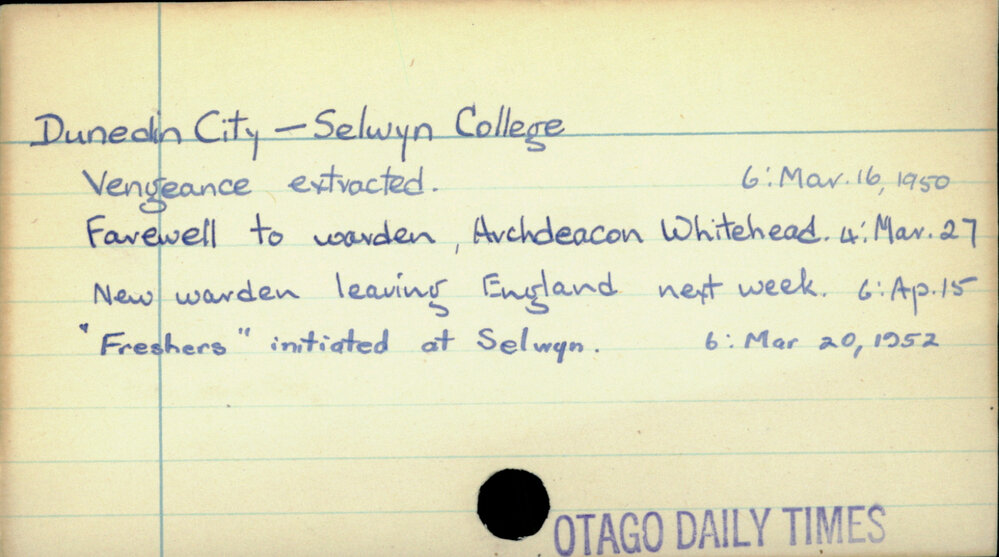 Dunedin City – Selwyn College
Vengeance extracted. 6: Mar. 16, 1950
Farewell to warden, Archdeacon Whitehead. 4: Mar. 27
New warden leaving England next week. 6: Ap. 15
"Freshers" initiated at Selwyn. 6: Mar 20, 1952
OTAGO DAILY TIMES